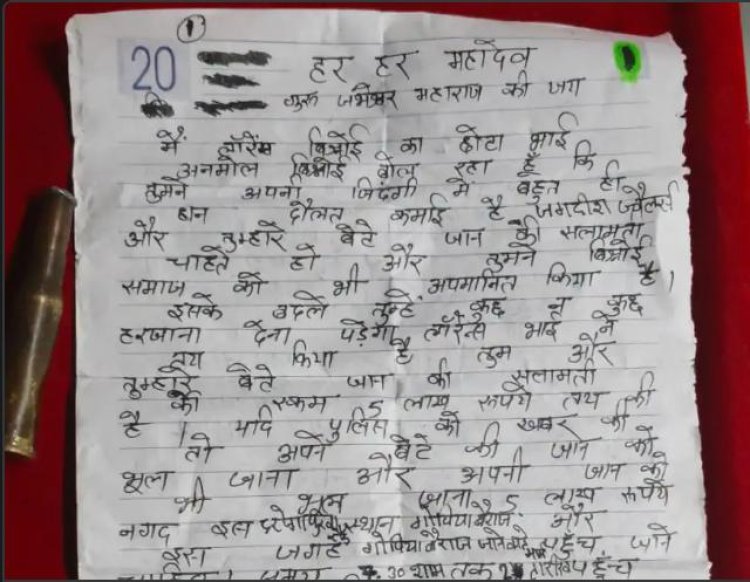 ①
20 हर हर महादेव
गुरु जंभेश्वर महाराज की जय
मैं लॉरेंस बिश्नोई का छोटा भाई
अनमोल बिश्नोई बोल रहा हूँ कि
तुमने अपनी जिंदगी में बहुत ही
धन दौलत कमाई है जगदीश ज्वैलर्स
और तुम्हारे बेटे जान की सलामती
चाहते हो और तुमने बिश्नोई
समाज को भी अपमानित किया है।
इसके बदले तुम्हे कुछ न कुछ
हरजाना देना पड़ेगा लॉरेन्स भाई ने
तय किया है तुम और
तुम्हारे बेटे जान की सलामती
की रकम 5 लाख रूपये तय की
है। यदि पुलिस को खबर की
तो अपने बेटे की जान को
भूल जाना और अपनी जान को
भी भूल जाना 5 लाख रूपये
नगद इस स्थान और
इस जगह पहुँच जाने
समय 30 शाम तक